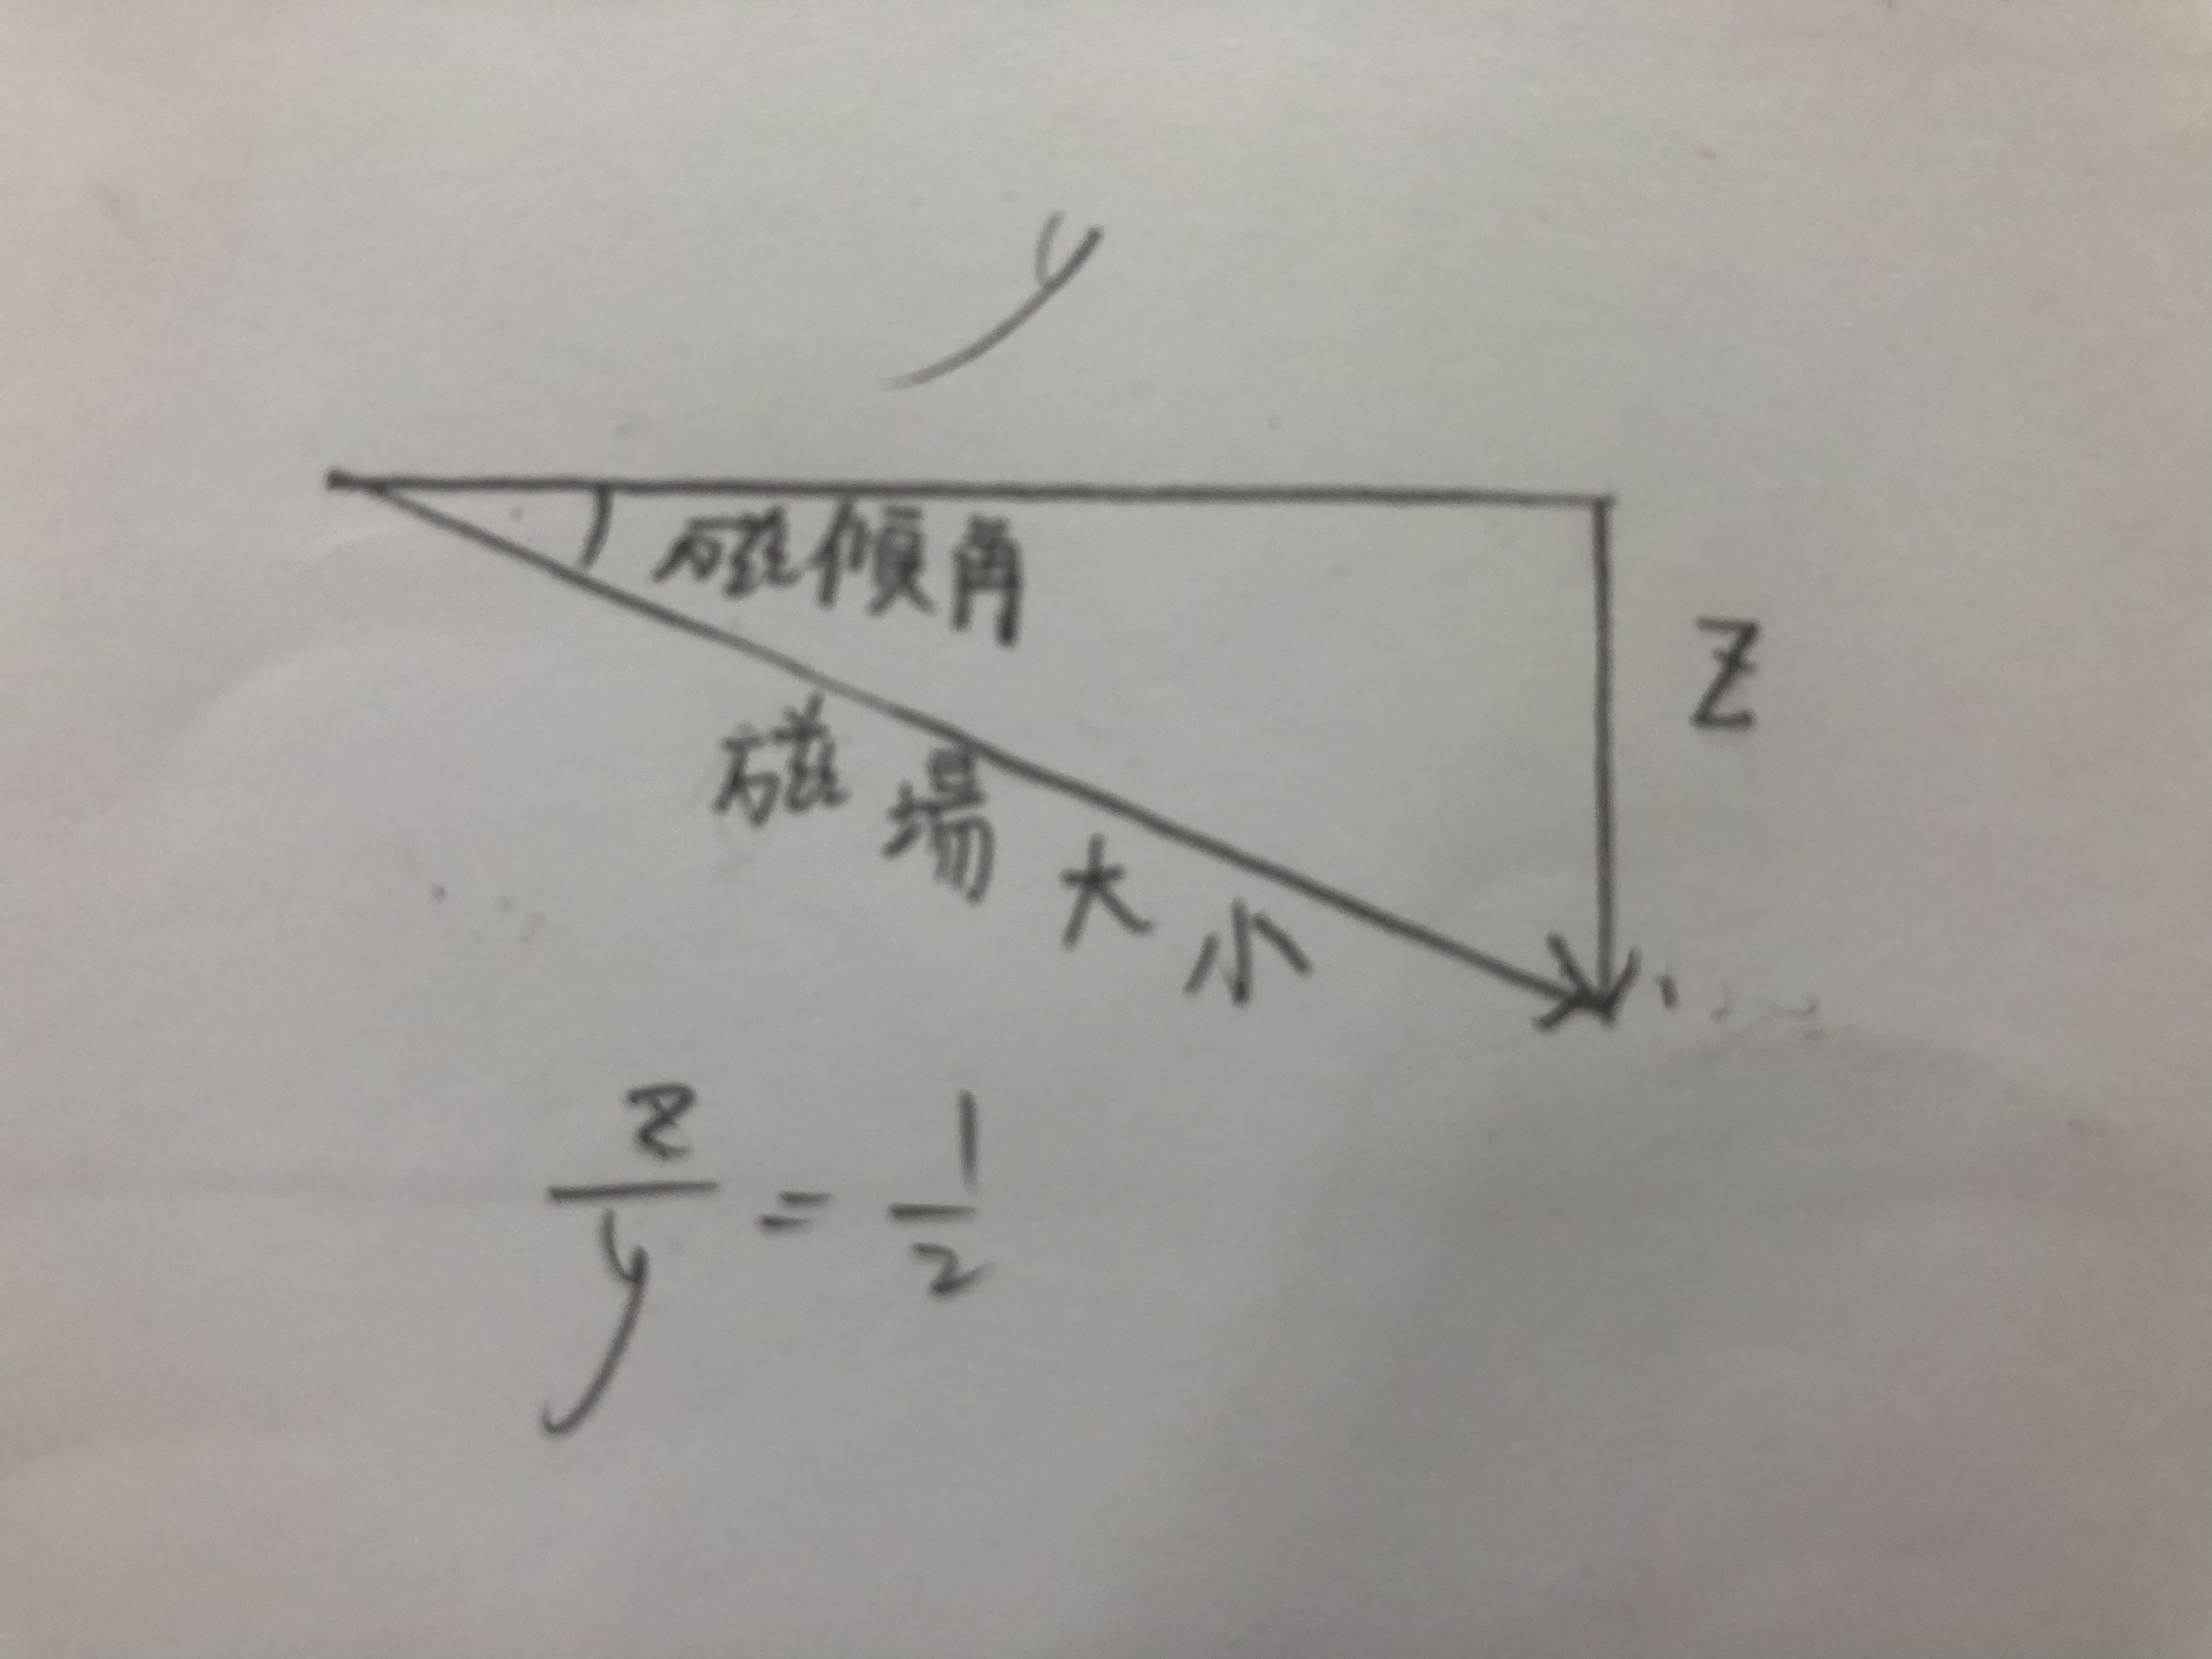 y
磁倾角
Z
磁场大小
z/y = 1/2